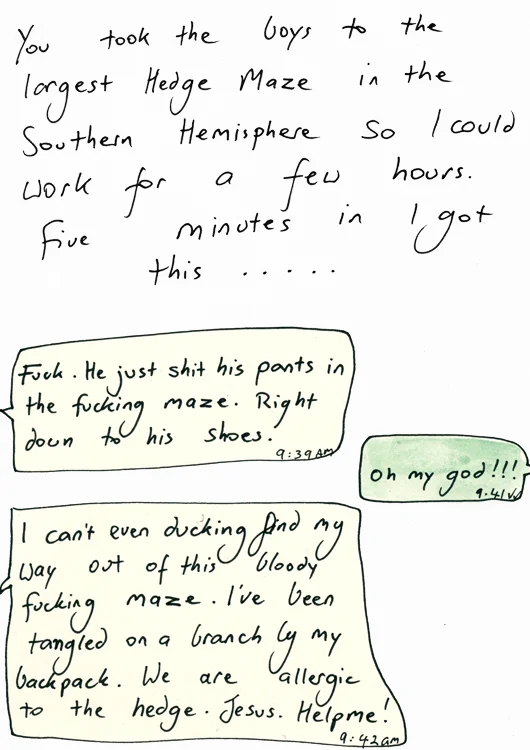 You took the boys to the
largest Hedge Maze in the
Southern Hemisphere so I could
work for a few hours.
Five minutes in I got
this .....
Fuck. He just shit his pants in
the fucking maze. Right
down to his shoes.
9:39AM
Oh my god!!!
9:41
I can't even ducking find my
way out of this bloody
fucking maze. I've been
tangled on a branch by my
backpack. We are allergic
to the hedge. Jesus. Help me!
9:42am